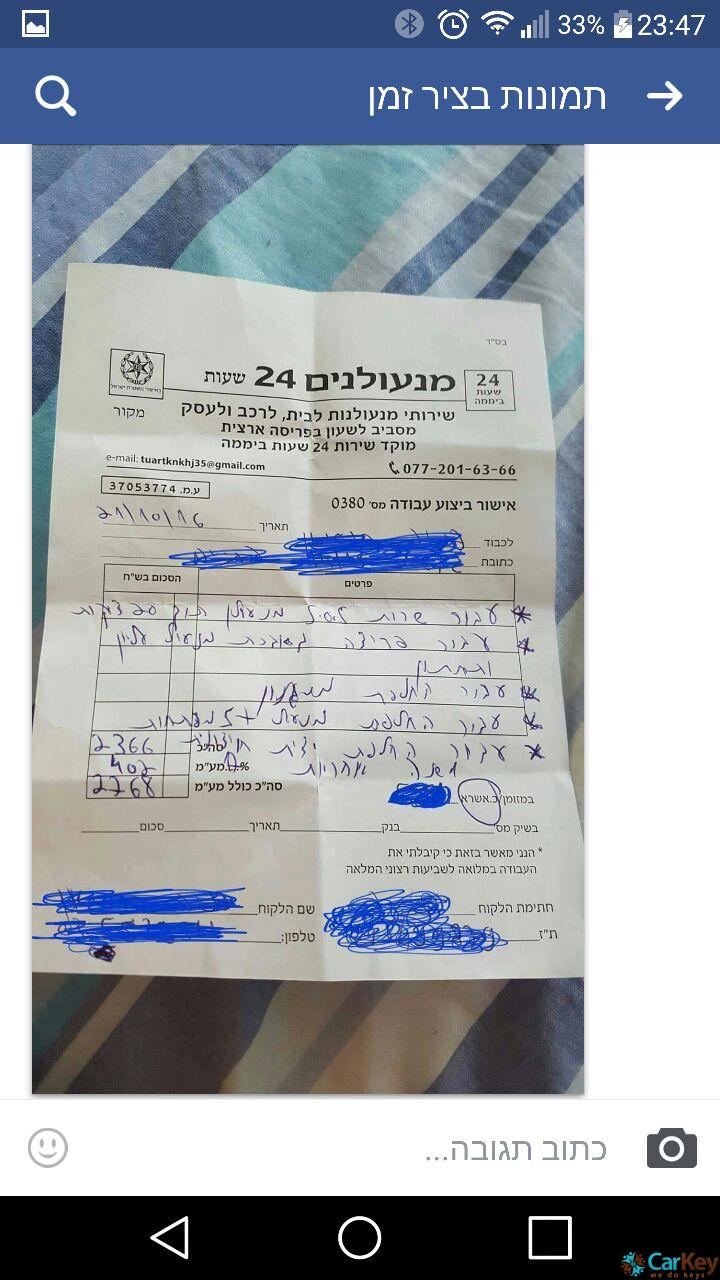 33% 23:47
תמונות בציר זמן
בס"ד
מנעולנים 24 שעות
24
שעות
ביממה
באישור משטרת ישראל
שירותי מנעולנות לבית, לרכב ולעסק
מקור
מסביב לשעון בפריסה ארצית
מוקד שירות 24 שעות ביממה
077-201-63-66
e-mail: tuartknkhj35@gmail.com
ע.מ. 37053774
אישור ביצוע עבודה מס' 0380
תאריך 21/10/16
לכבוד
כתובת
פרטים הסכום בש"ח
* עבור שרות לאיל מנעולן תוך 20 דקות
* עבור פריצה מנעול עליון
ותחתון
* עבור החלפת מנגנון
* עבור החלפת מנעול + 5 מפתחות
* עבור החלפת ידית חיצונית
שנה אחריות
סה"כ 2366
% מע"מ 402
סה"כ כולל מע"מ 2768
במזומן/כ.אשראי
בשיק מס' בנק תאריך סכום
* הנני מאשר בזאת כי קיבלתי את
העבודה במלואה לשביעות רצוני המלאה
חתימת הלקוח שם הלקוח
ת"ז טלפון:
כתוב תגובה...
CarKey
we do keys